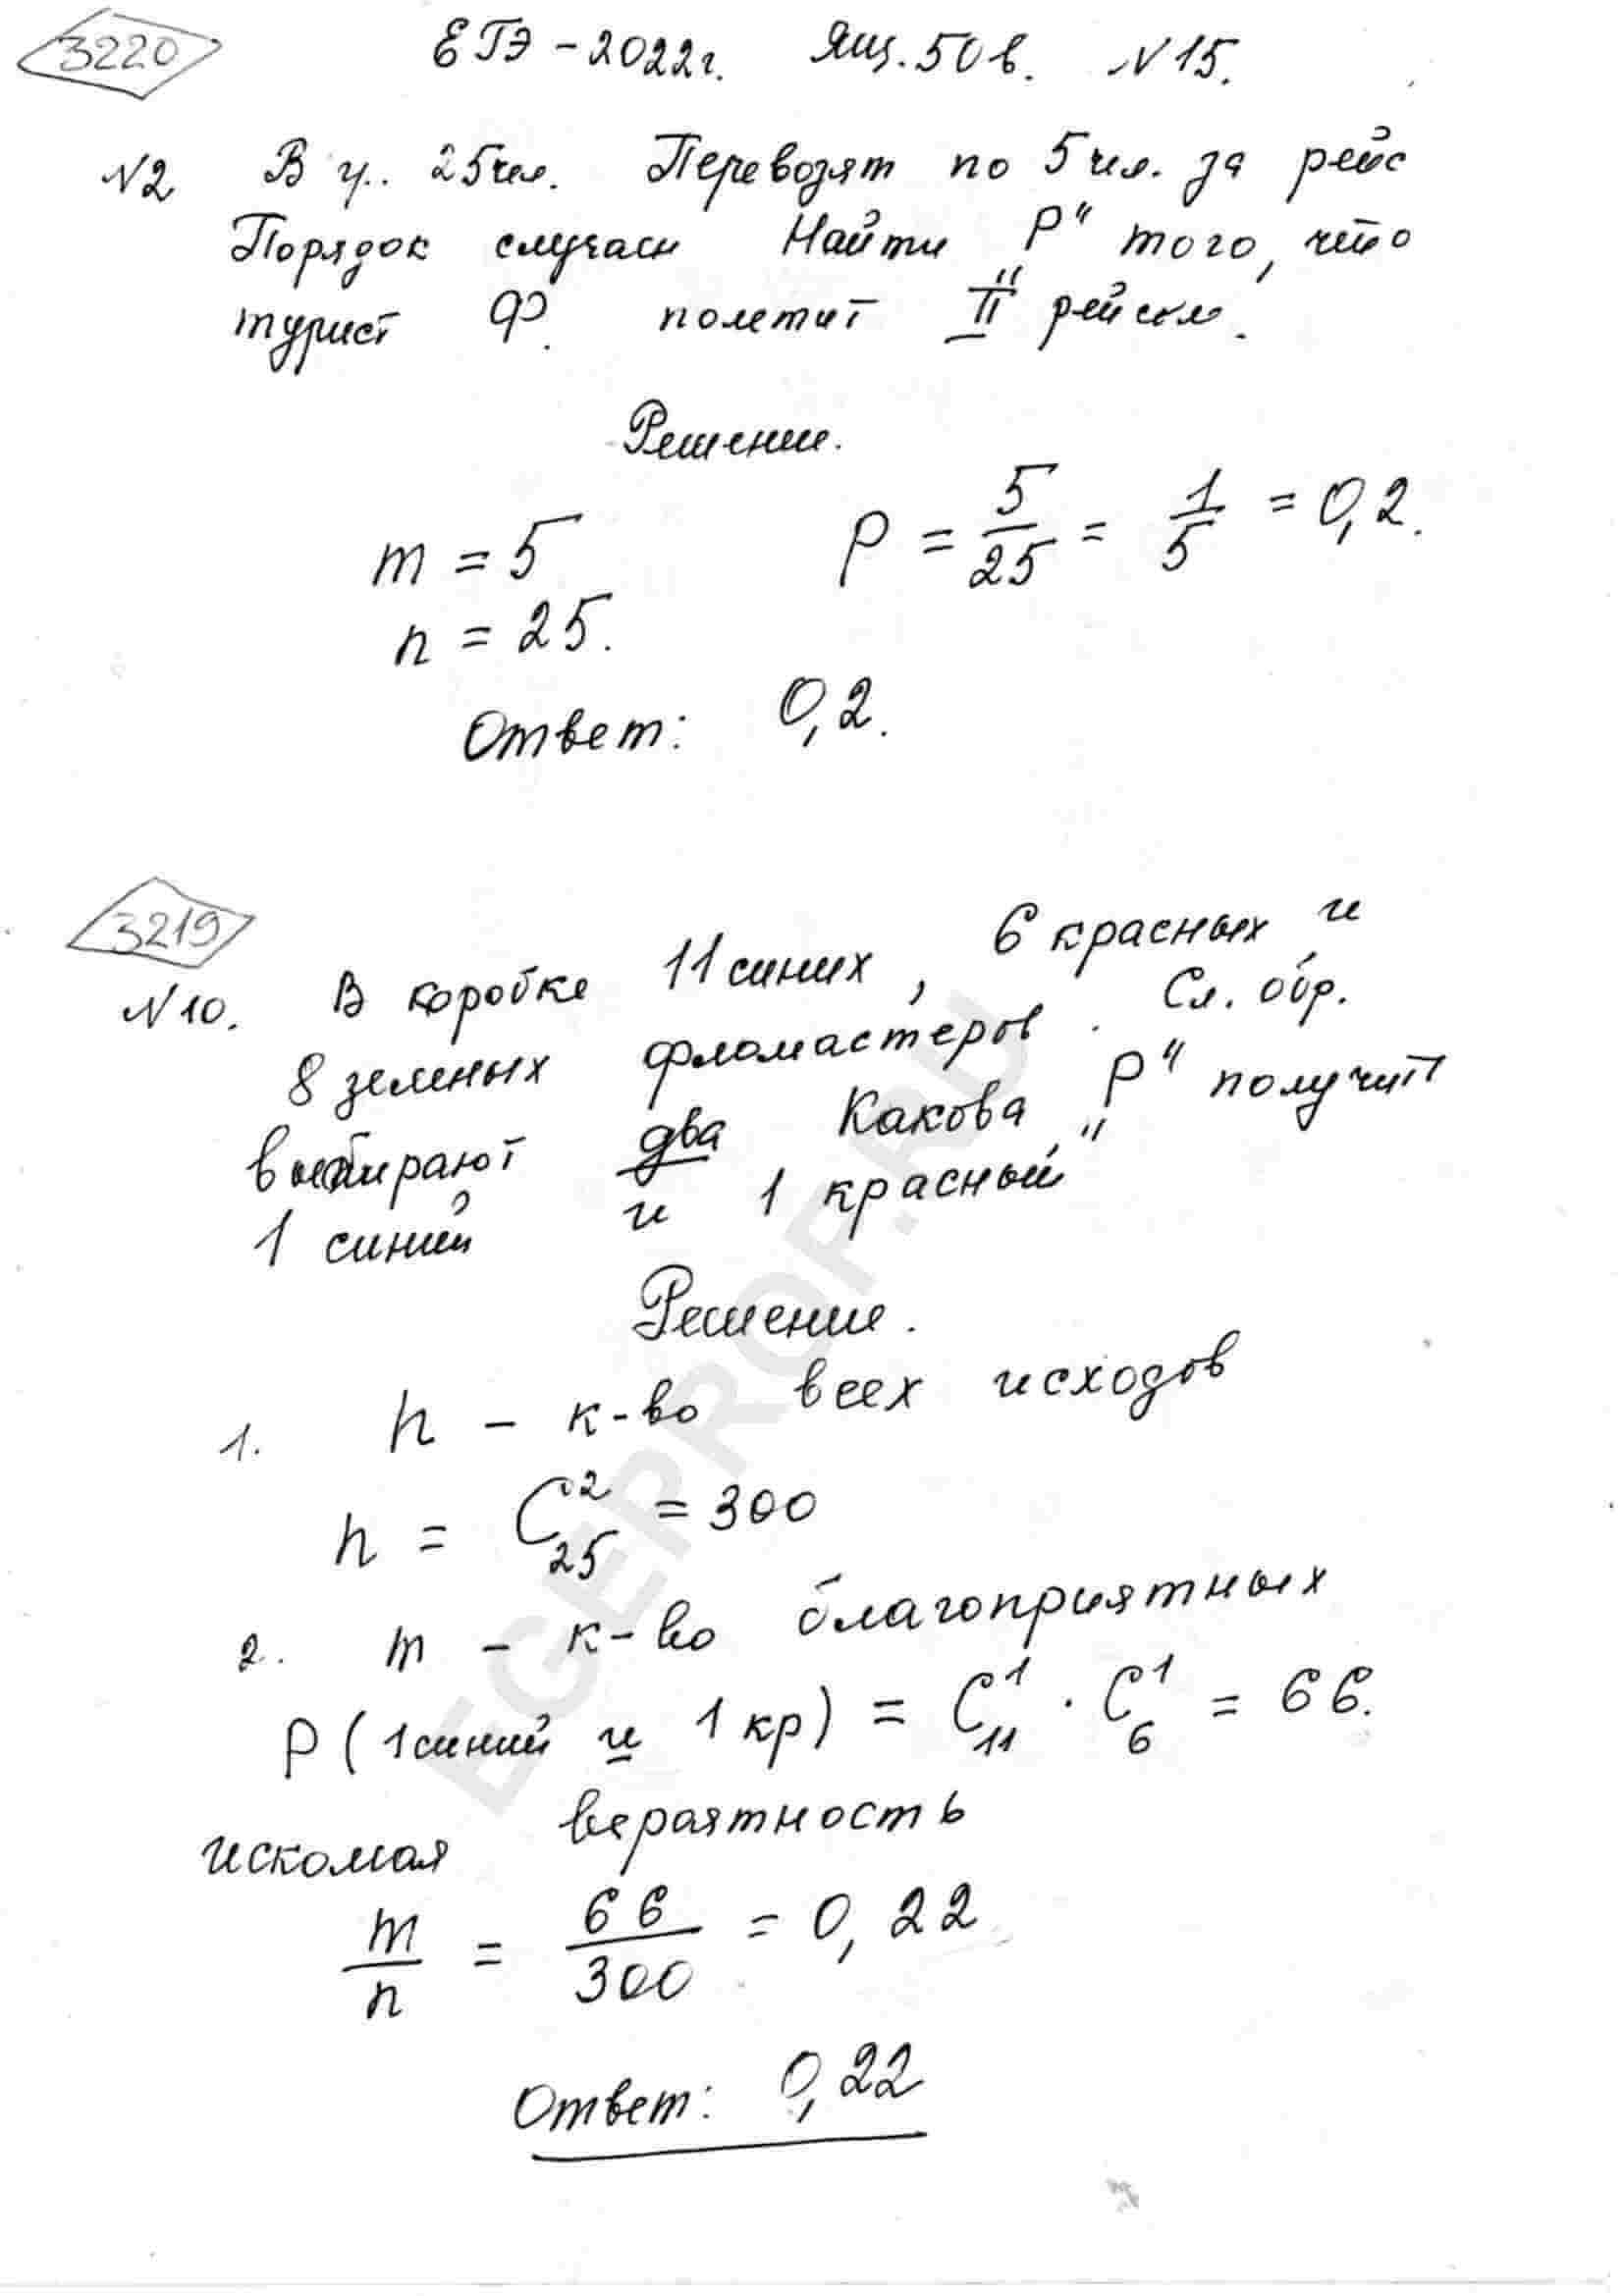 3220
ЕГЭ - 2022г. Ящ. 50в. №15.
№2 В гр. 25чел. Перевозят по 5 чел. за рейс
Порядок случаен Найти "Р" того, что
турист Ф. полетит II рейсом.
Решение.
m = 5
P = 5/25 = 1/5 = 0,2.
n = 25.
Ответ: 0,2.
3219
№10. В коробке 11 синих, 6 красных и
8 зеленых фломастеров. Сл. обр.
выбирают два Какова "Р" получит
1 синий и 1 красный
Решение.
1. n - к-во всех исходов
n = C²₂₅ = 300
2. m - к-во благоприятных
P (1 синий и 1 кр) = C¹₁₁ · C¹₆ = 66.
искомая вероятность
m/n = 66/300 = 0,22
Ответ: 0,22
EGEPROF.RU